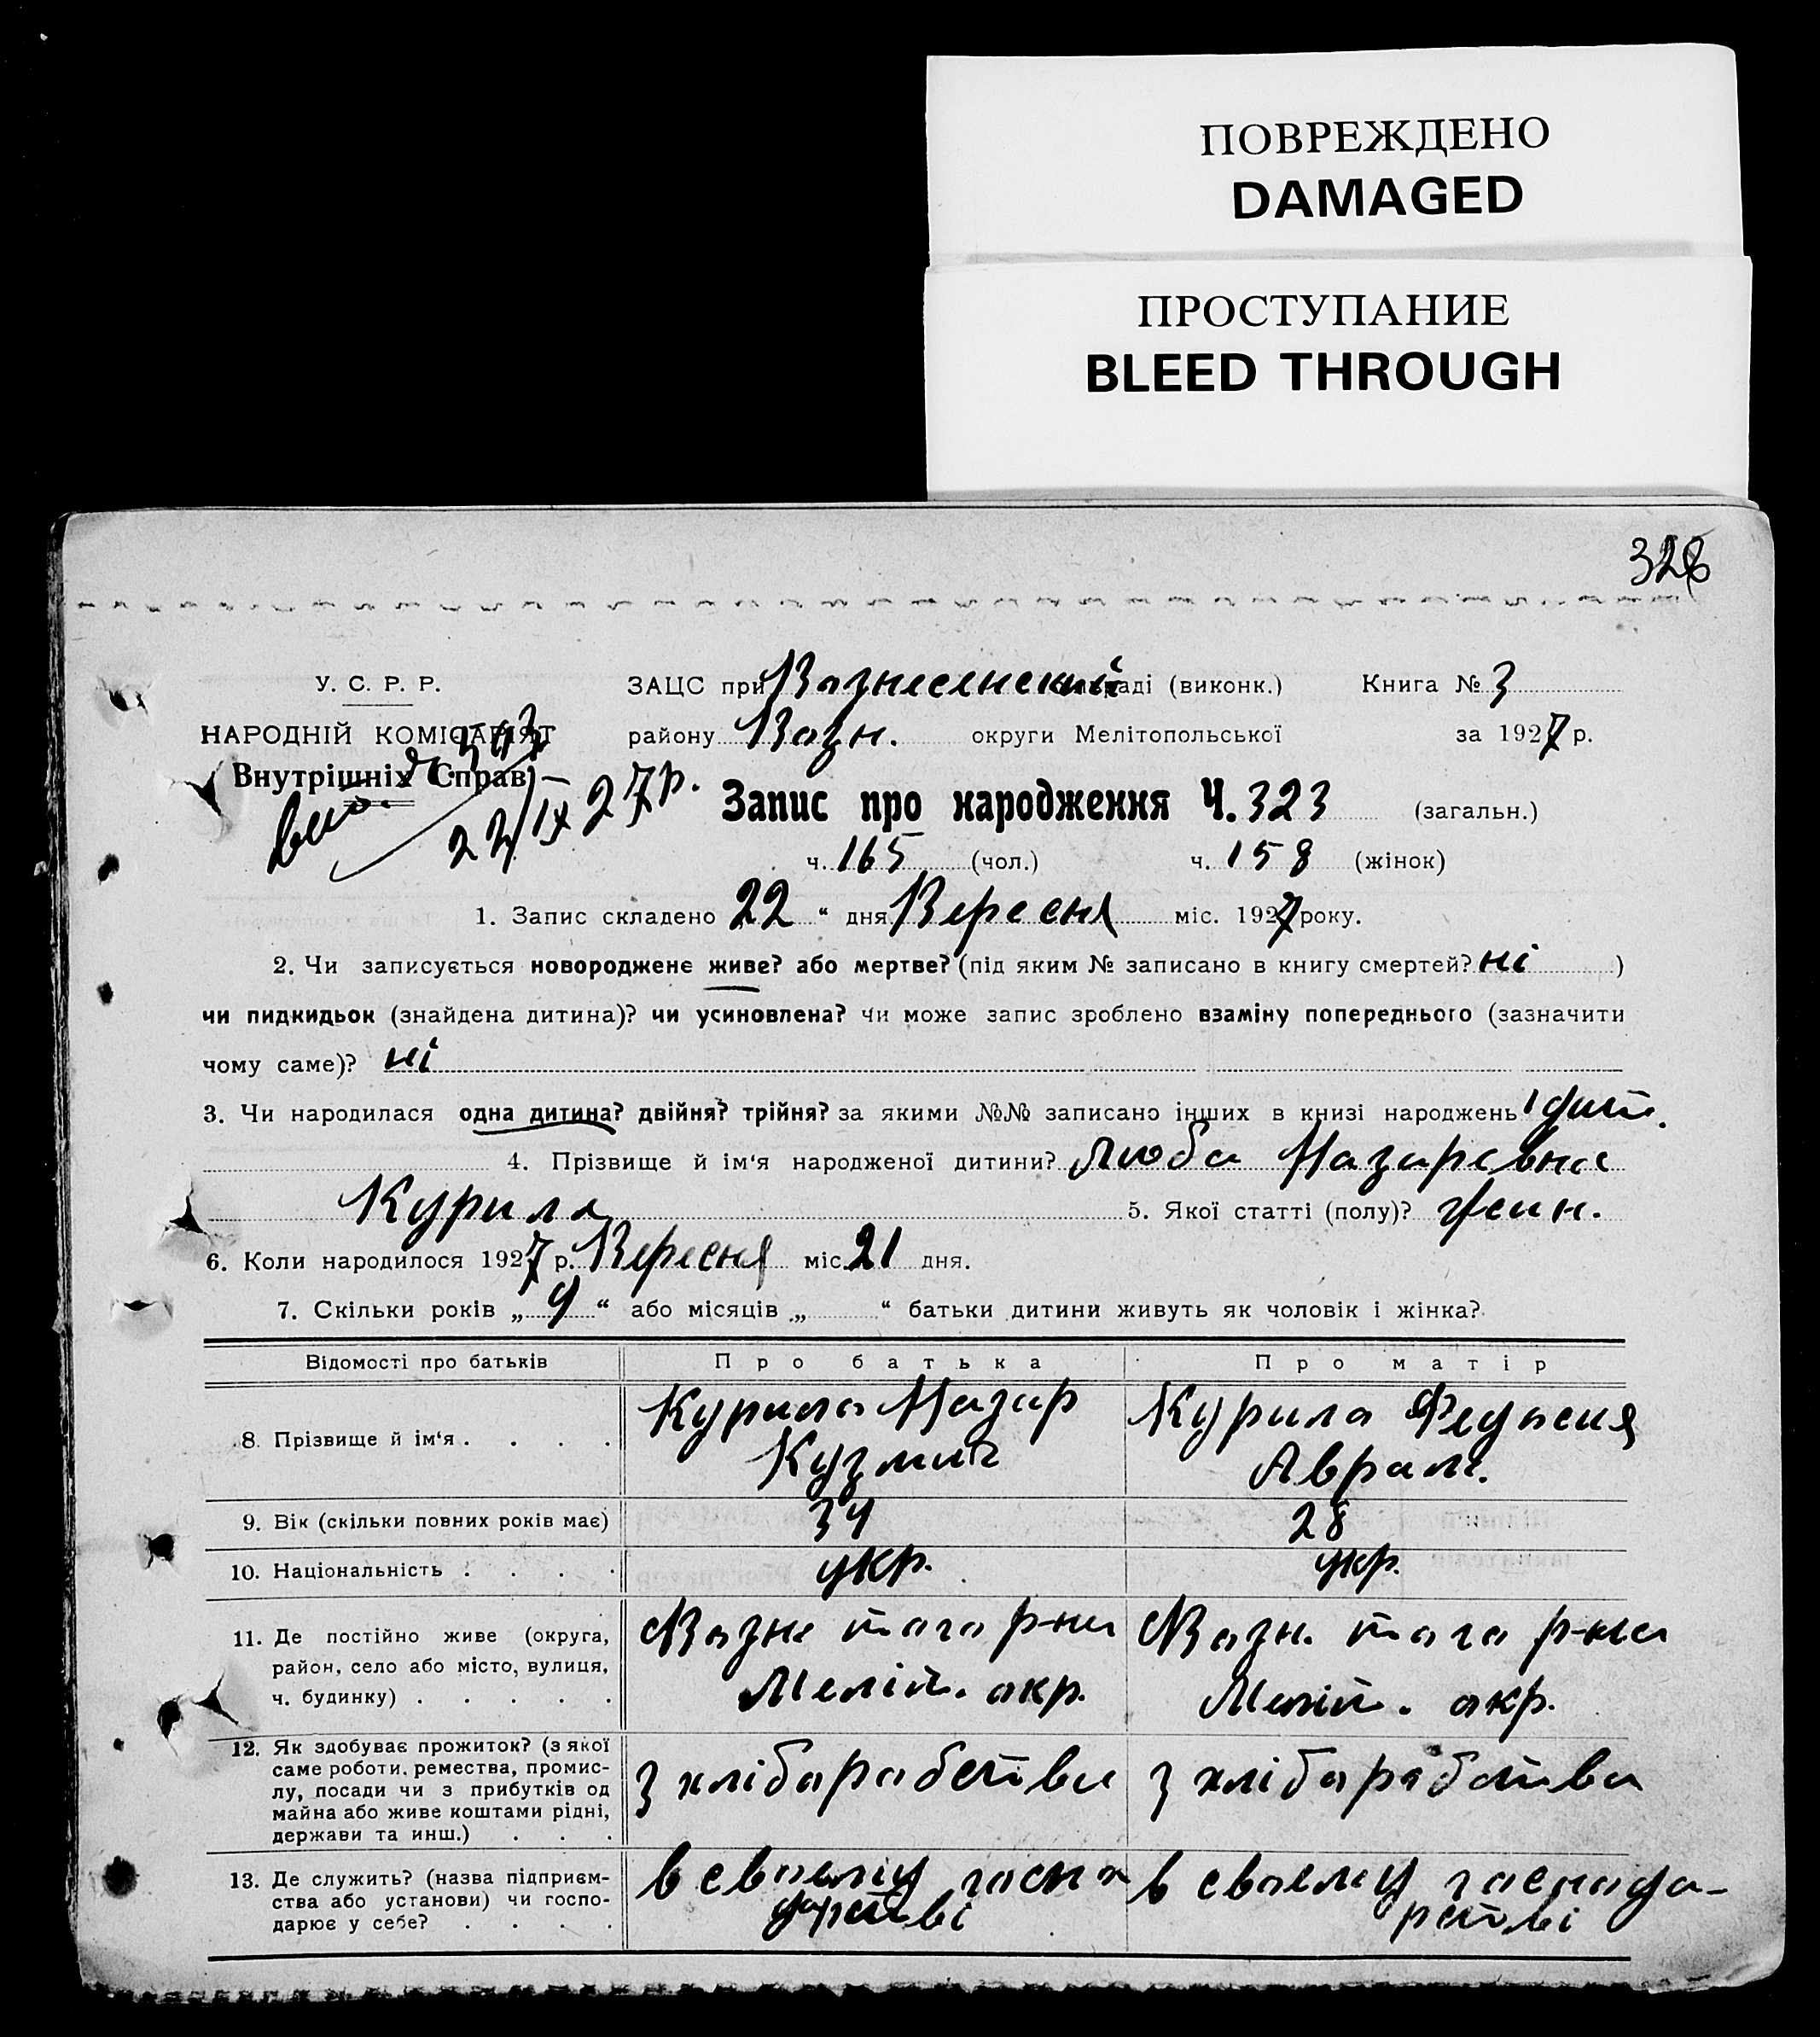 ПОВРЕЖДЕНО
DAMAGED
ПРОСТУПАНИЕ
BLEED THROUGH
У. С. Р. Р.
НАРОДНІЙ КОМІСАРІЯТ
Внутрішніх Справ
22/IX 27 р.
ЗАЦС при Вознесенский раді (виконк.) Книга № 3
району Возн. округи Мелітопольської за 1927 р.
Запис про народження Ч. 323 (загальн.)
ч. 165 (чол.) ч. 158 (жінок)
1. Запис складено 22 “ дня Вересня міс. 1927 року.
2. Чи записується новороджене живе? або мертве? (під яким № записано в книгу смертей? ні )
чи пидкидьок (знайдена дитина)? чи усиновлена? чи може запис зроблено взаміну попереднього (зазначити
чому саме)? ні
3. Чи народилася одна дитина? двійня? трійня? за якими №№ записано інших в книзі народжень 1 дит.
4. Прізвище й ім‘я народженої дитини? Люба Назаровна
Курила 5. Якої статті (полу)? жин.
6. Коли народилося 1927 р. Вересня міс. 21 дня.
7. Скільки років „ 9 “ або місяців „ “ батьки дитини живуть як чоловік і жінка?
Відомості про батьків Про батька Про матір
8. Прізвище й ім‘я . . . . Курила Назар Курила Федосия
Кузмич Аврам.
9. Вік (скільки повних років має) 34 28
10. Національність . . . . укр. укр.
11. Де постійно живе (округа, Возне того р-на Возн. того р-на
район, село або місто, вулиця,
ч. будинку) . . . . . Меліт. окр. Меліт. окр.
12. Як здобуває прожиток? (з якої
саме роботи, ремества, промис-
лу, посади чи з прибутків од з хліборобства з хліборобства
майна або живе коштами рідні,
держави та инш.) . . .
13. Де служить? (назва підприєм- в своєму госпо в своєму господа-
ства або установи) чи госпо- дарстві рстві
дарює у себе? . . . .